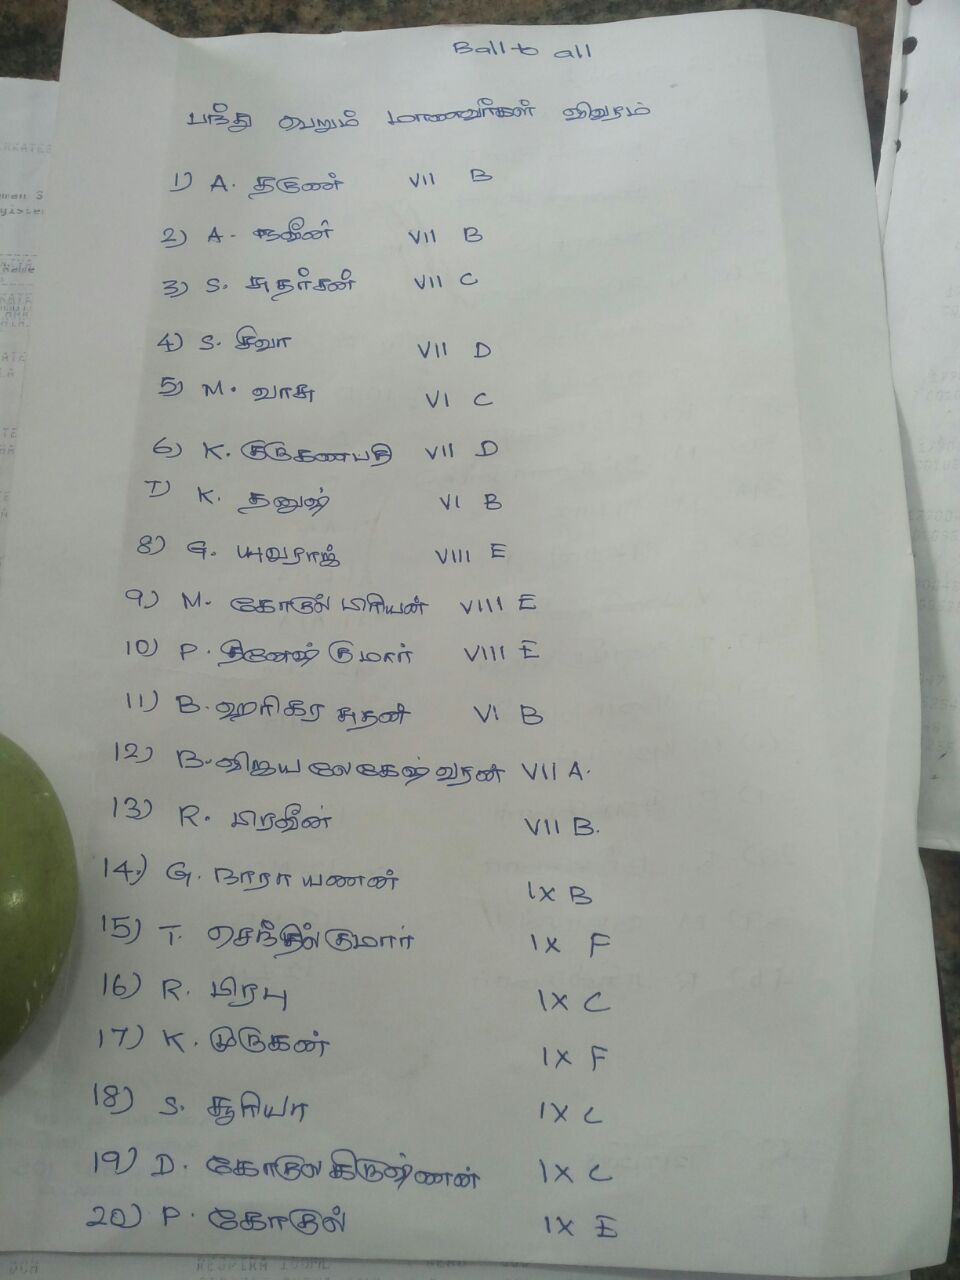 Ball to all
பந்து பெறும் மாணவர்கள் விவரம்
1) A. தருண் VII B
2) A. நவீன் VII B
3) S. சுதர்சன் VII C
4) S. சிவா VII D
5) M. வாசு VI C
6) K. குருகணபதி VII D
7) K. தனுஷ் VI B
8) G. யுவராஜ் VIII E
9) M. கோகுல் பிரியன் VIII E
10) P. தினேஷ் குமார் VIII E
11) B. ஹரிகர சுதன் VI B
12) B. விஜய லேகேஷ்வரன் VII A.
13) R. பிரவீன் VII B.
14.) G. நாராயணன் IX B
15) T. செந்தில்குமார் IX F
16) R. பிரபு IX C
17) K. முருகன் IX F
18) S. சூரியா IX C
19) D. கோகுல கிருஷ்ணன் IX C
20) P. கோகுல் IX E